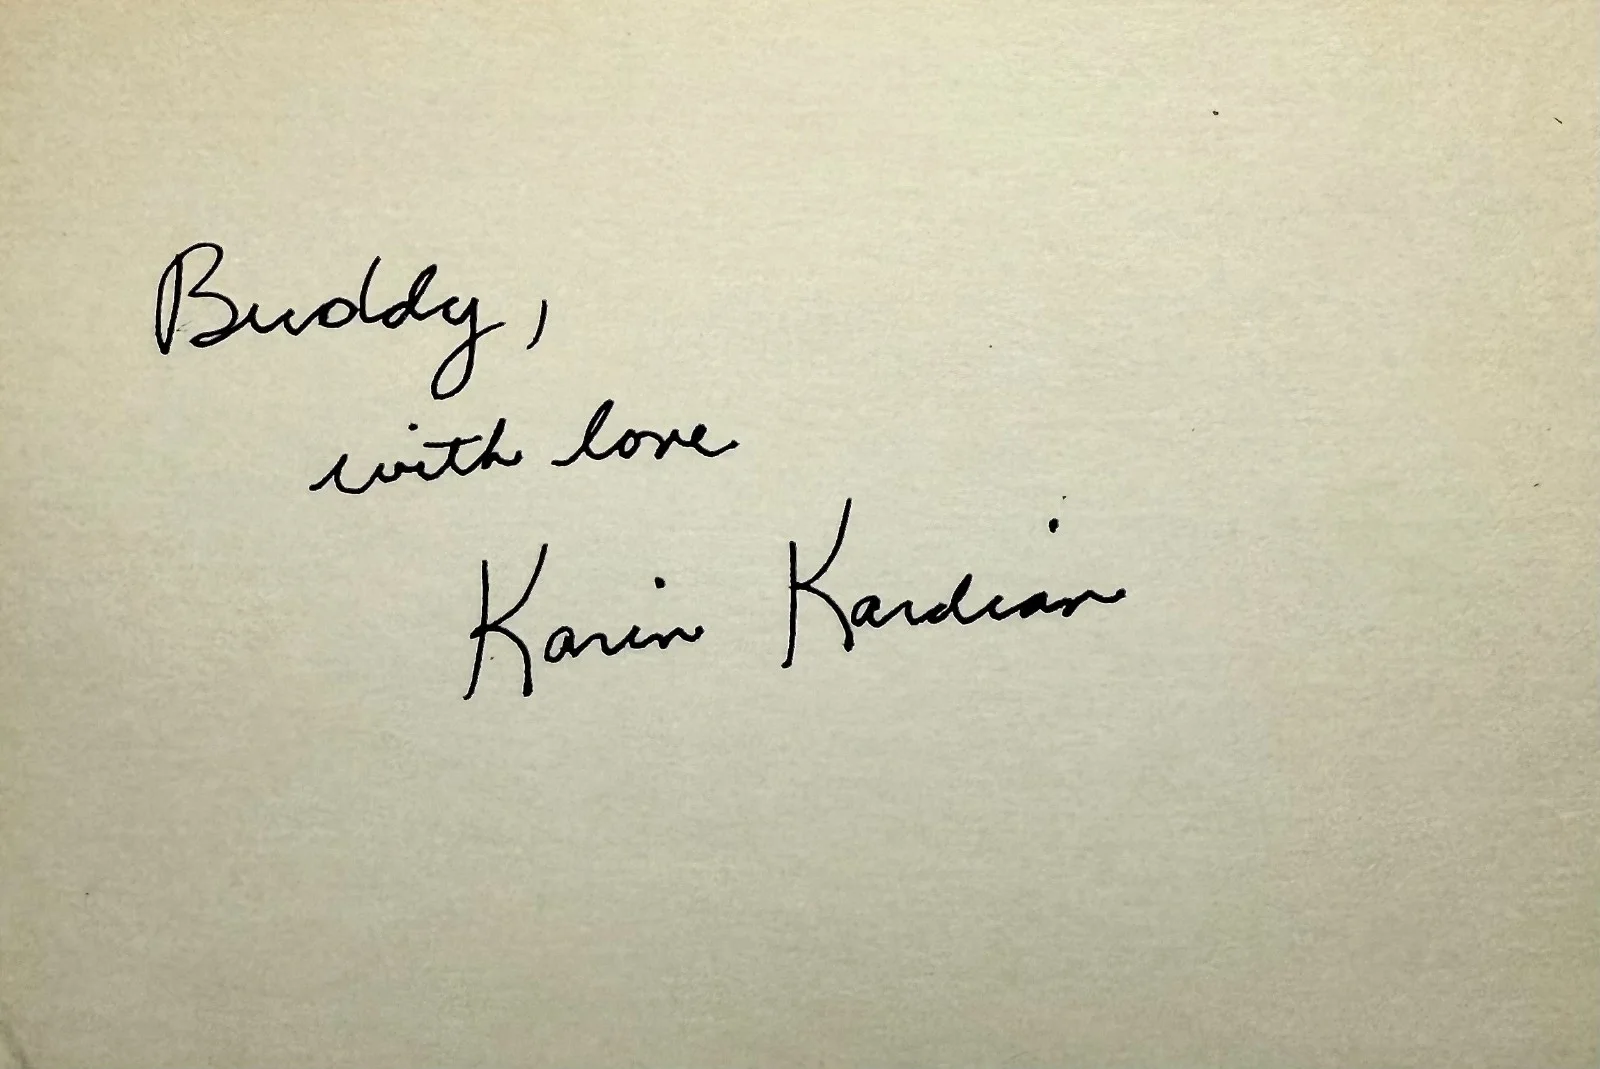 Buddy,
with love
Karin Kardian